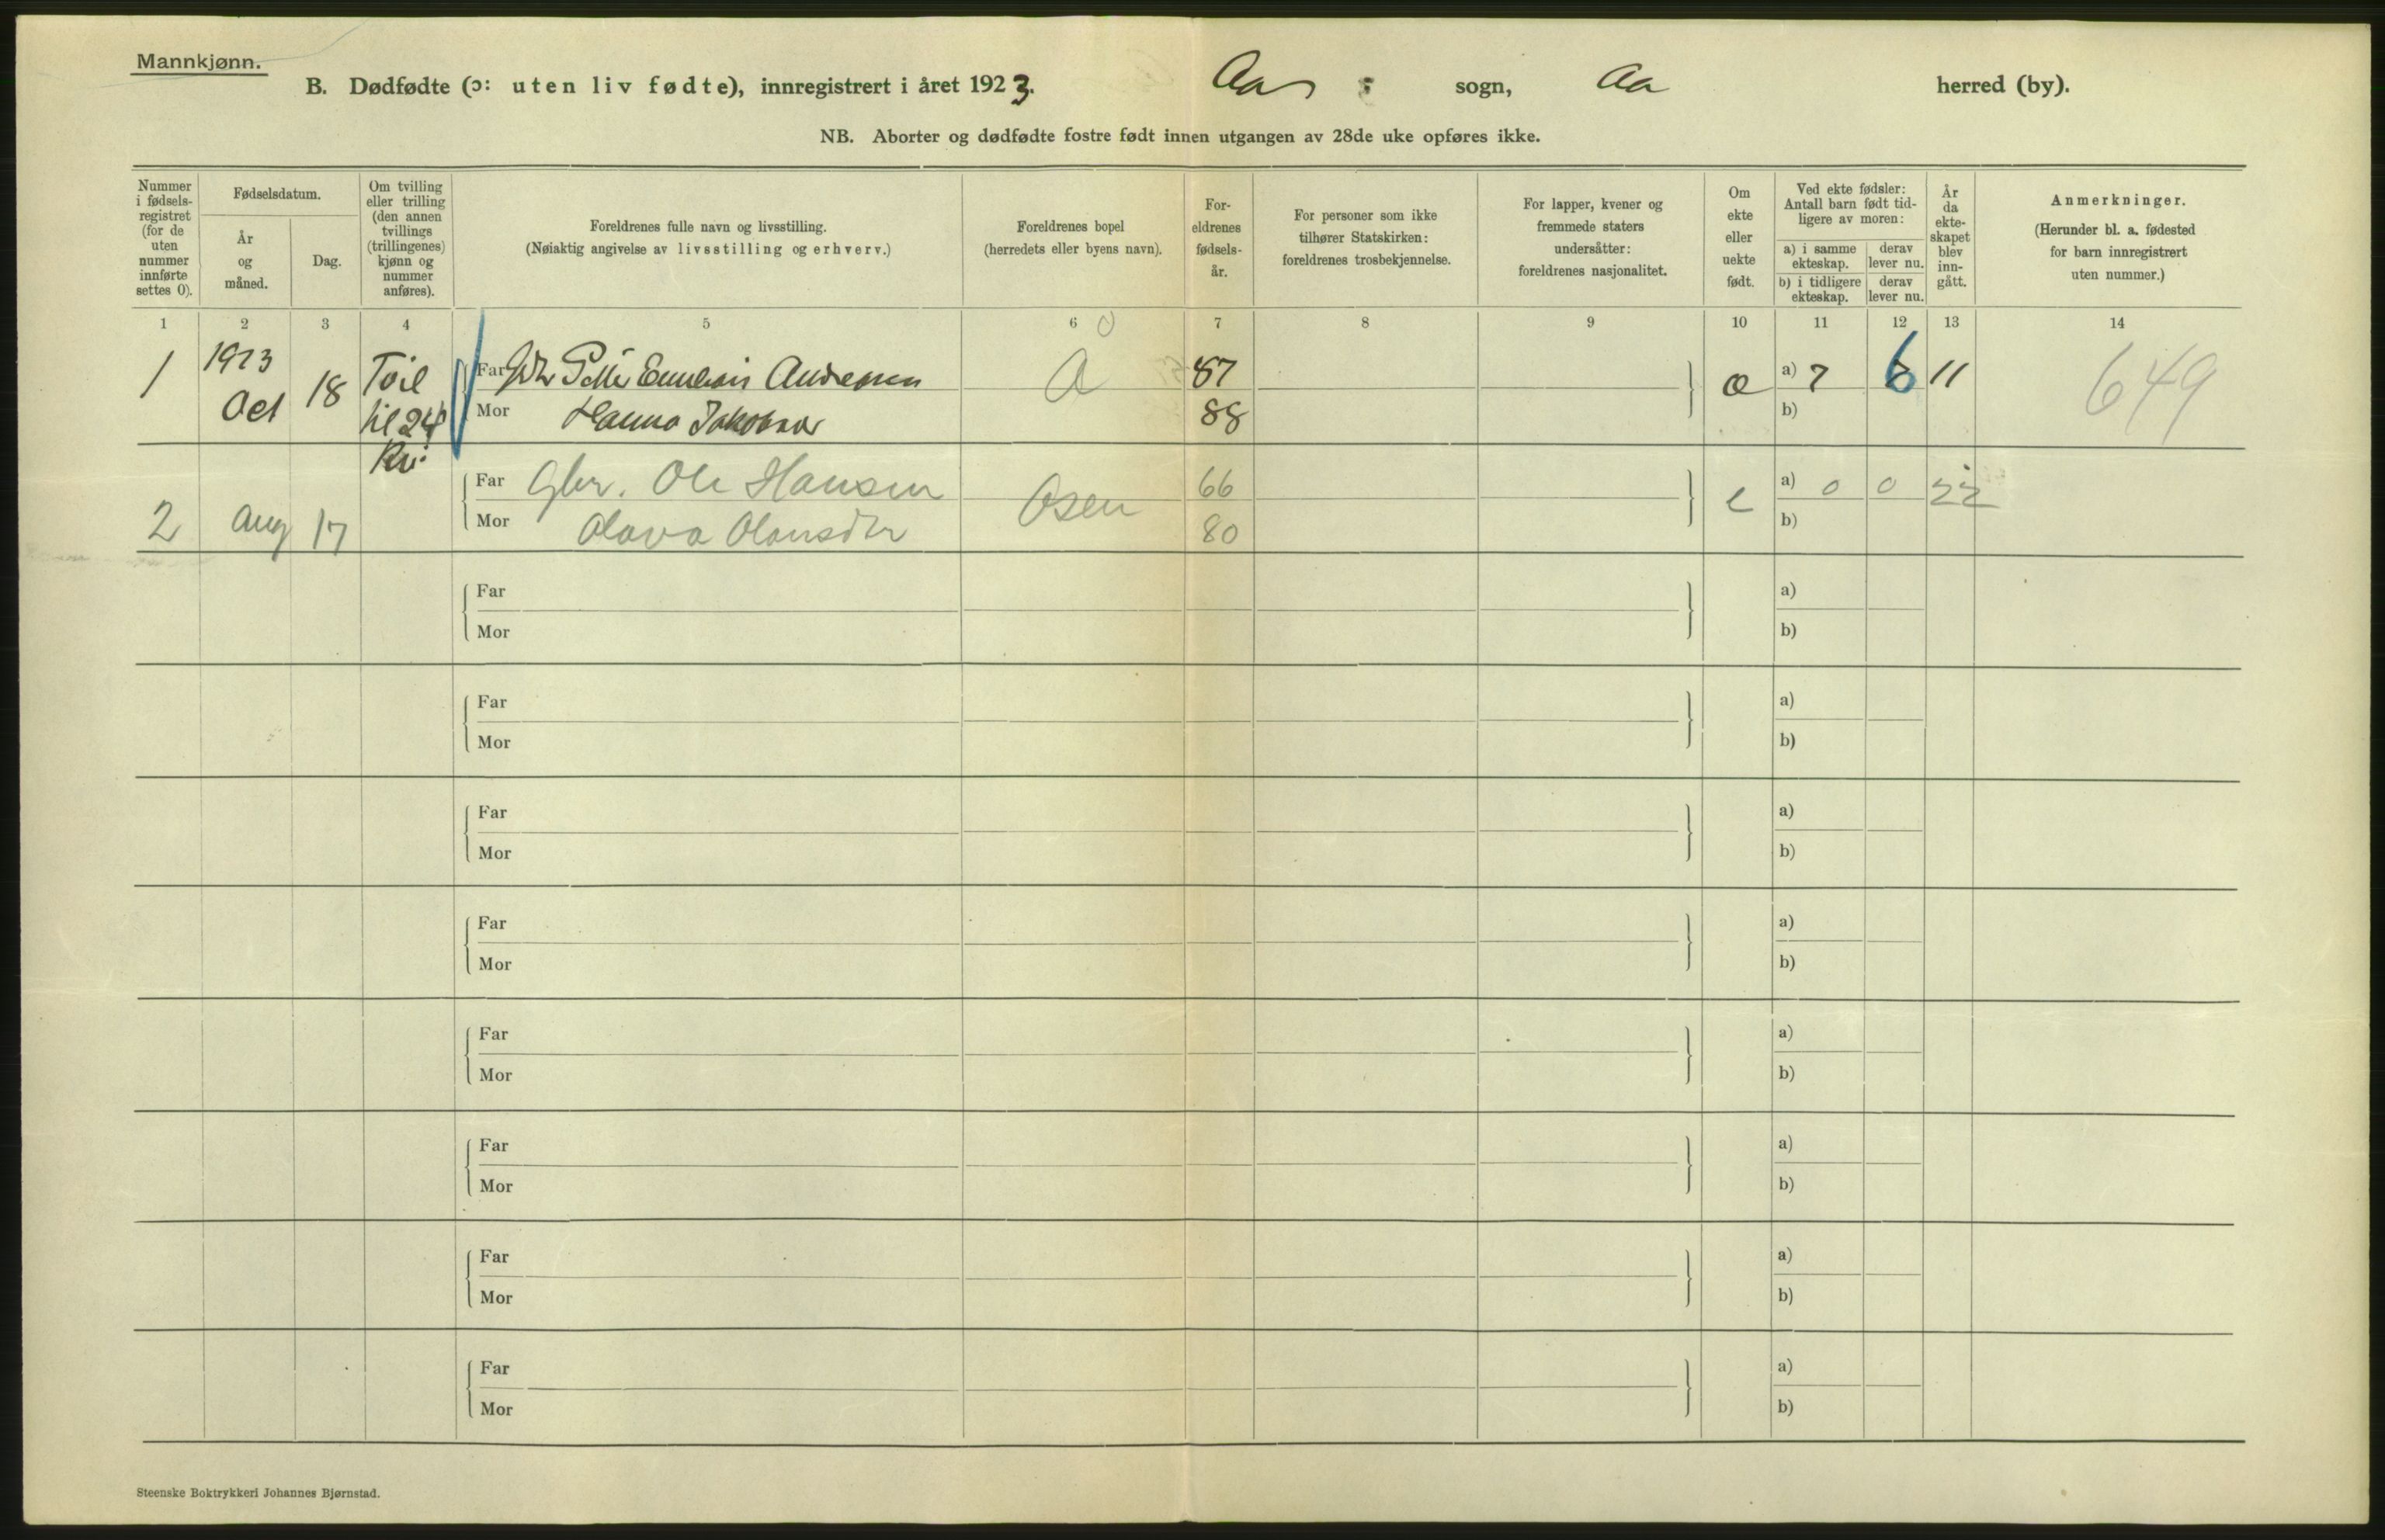 Mannkjønn.
B. Dødfødte (ɔ: uten liv fødte), innregistrert i året 1923. Aa sogn, Aa herred (by).
NB. Aborter og dødfødte fostre født innen utgangen av 28de uke opføres ikke.
Nummer i fødselsregistret (for de uten nummer innførte settes 0).
Fødselsdatum.
År og måned.
Dag.
Om tvilling eller trilling (den annen tvillings (trillingenes) kjønn og nummer anføres).
Foreldrenes fulle navn og livsstilling.
(Nøiaktig angivelse av livsstilling og erhverv.)
Foreldrenes bopel
(herredets eller byens navn).
Foreldrenes fødselsår.
For personer som ikke tilhører Statskirken: foreldrenes trosbekjennelse.
For lapper, kvener og fremmede staters undersåtter: foreldrenes nasjonalitet.
Om ekte eller uekte født.
Ved ekte fødsler: Antall barn født tidligere av moren:
a) i samme ekteskap. derav lever nu.
b) i tidligere ekteskap. derav lever nu.
År da ekteskapet blev inngått.
Anmerkninger.
(Herunder bl. a. fødested for barn innregistrert uten nummer.)
1 2 3 4 5 6 7 8 9 10 11 12 13 14
1 1923 Oct 18 til 24 Far Andersen 87 a) 7 6 11 649
Mor Hanna 88 b)
2 Aug 17 Far Gbr. Ole Hansen Osen 66 e a) 0 0 22
Mor Olava 80 b)
Far a)
Mor b)
Far a)
Mor b)
Far a)
Mor b)
Far a)
Mor b)
Far a)
Mor b)
Far a)
Mor b)
Far a)
Mor b)
Far a)
Mor b)
Steenske Boktrykkeri Johannes Bjørnstad.